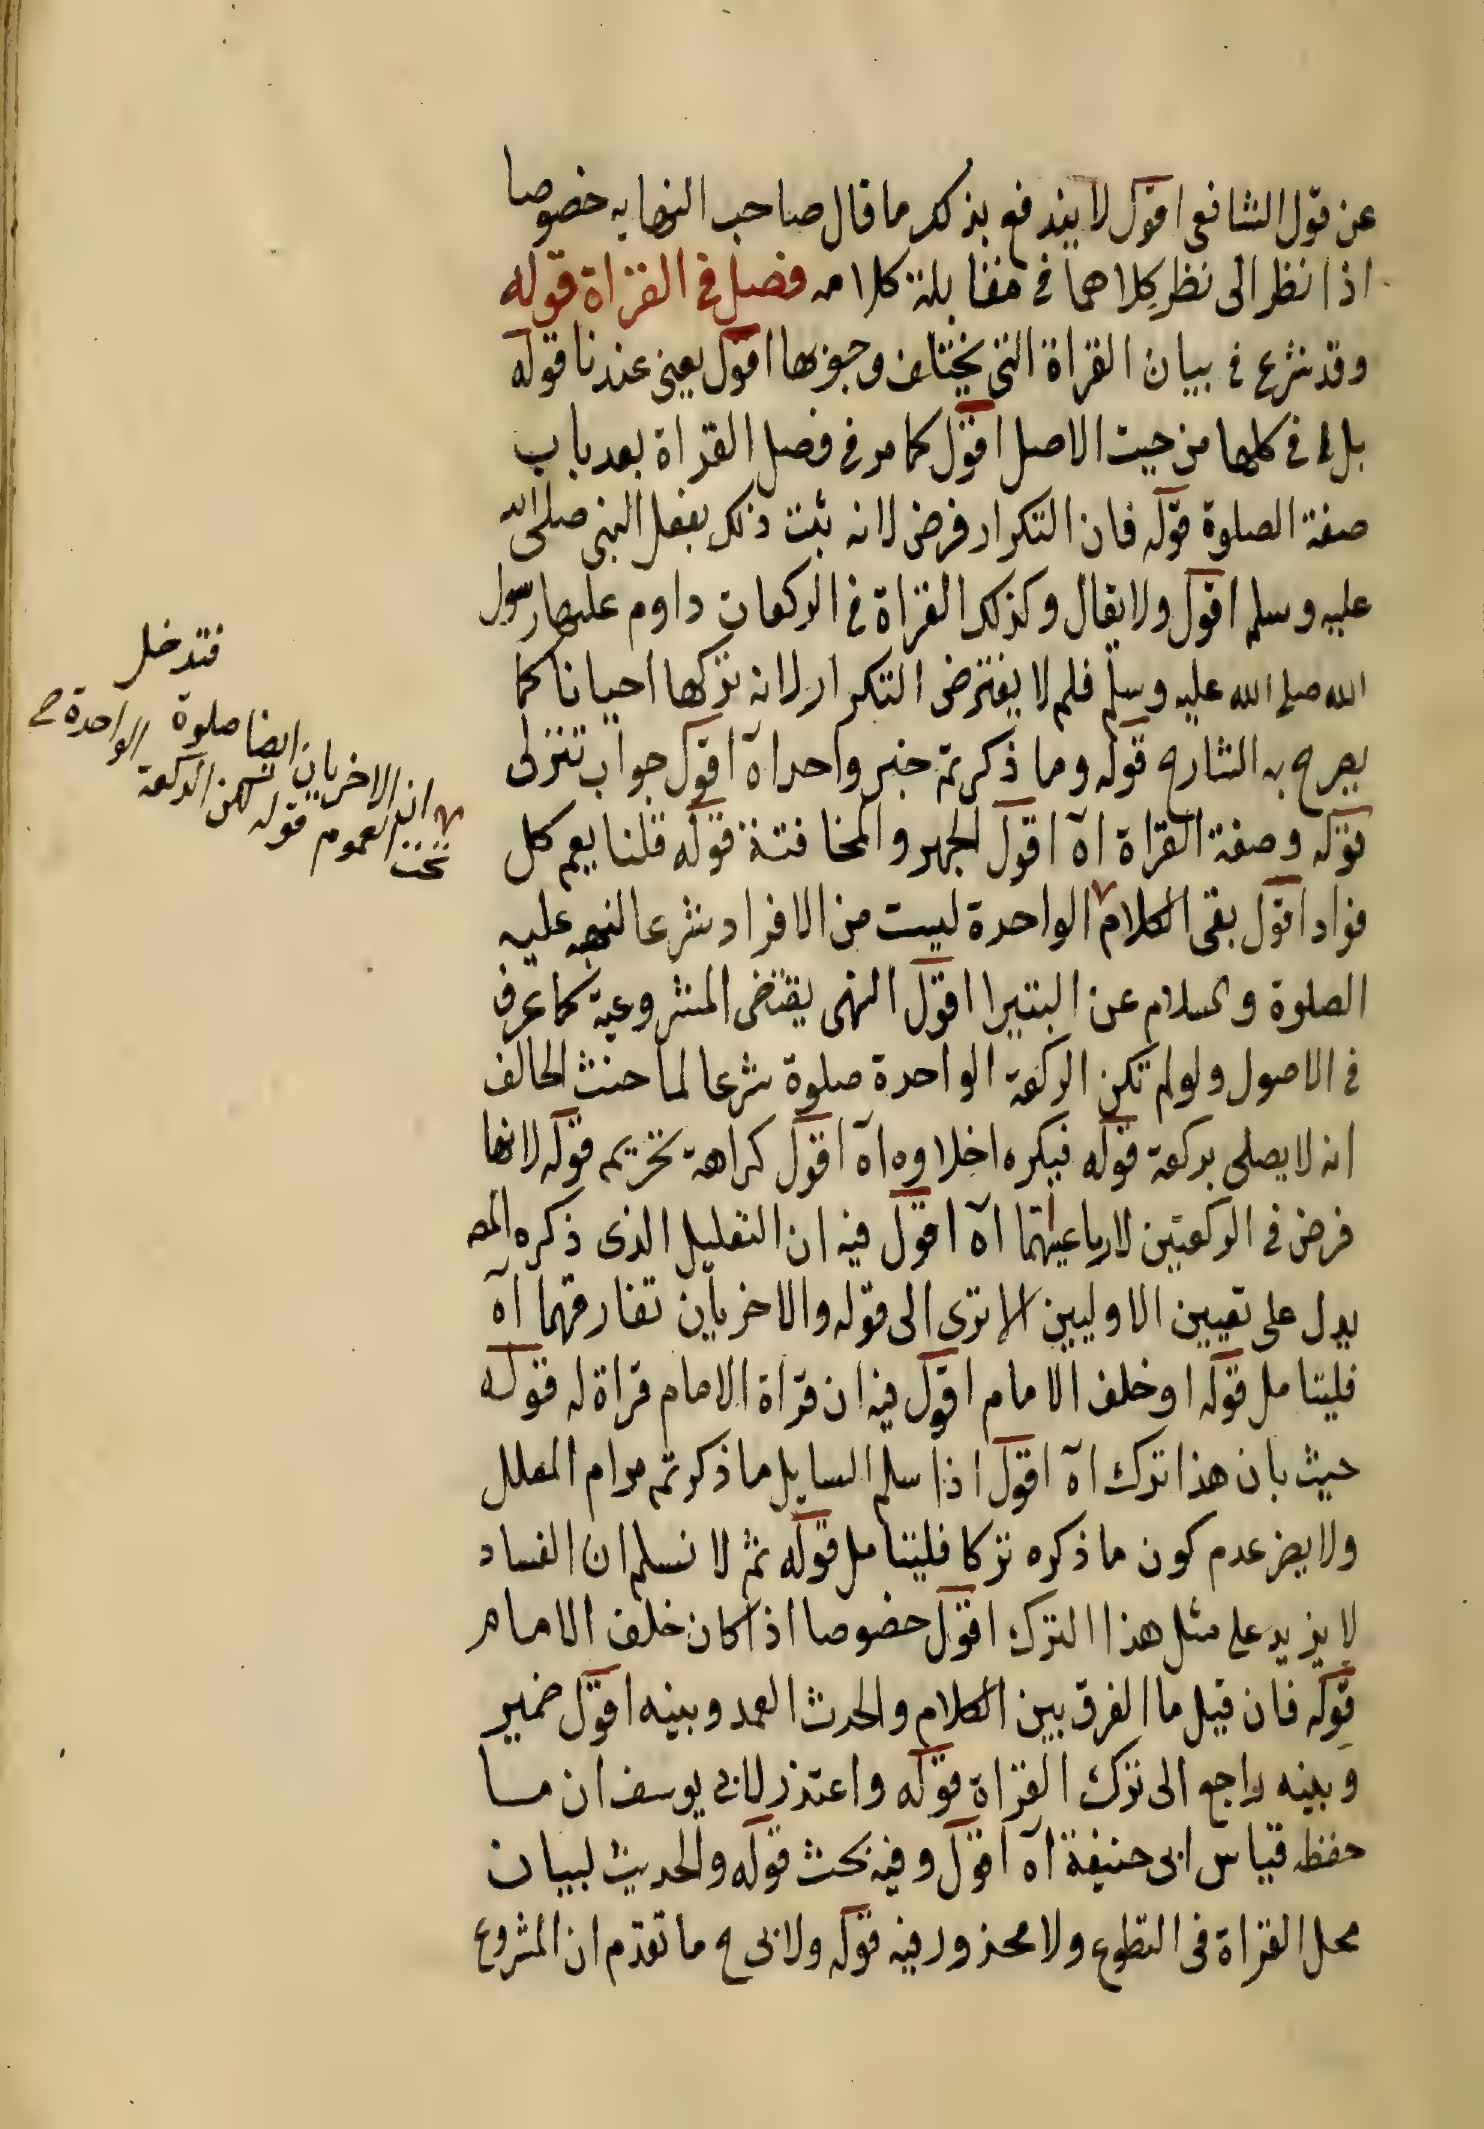 عن قول الشافعى اقول لا يندفع بذلك ما قال صاحب النهايه خصوصا
اذا نظر الى نظر كلاهما فى مقابلة كلامه فصل فى القراة قوله
وقد شرع فى بيان القراة التى يختلف وجوبها اقول يعنى عندنا قوله
بل فى كلها من حيث الاصل اقول كما مر فى فصل القراة بعد باب
صفة الصلوة قوله فان التكرار فرض لانه ثبت ذلك بفعل النبى صلى الله
عليه وسلم اقول ولا يقال وكذلك القراة فى الركعات داوم عليها رسول
الله صلى الله عليه وسلم فلم لا يفترض التكرار لانه تركها احيانا كما
يصرح به الشارح قوله وما ذكرتم خبر واحد اه اقول جواب تنزلى
قوله وصفة القراة اه اقول الجهر والمخافتة قوله قلنا يعم كل
فراد اقول بقى الكلام الواحدة ليست من الافراد شرعا لنهيه عليه
الصلوة والسلام عن البتيرا اقول النهى يقتضى المشروعية كما عرف
فى الاصول ولو لم تكن الركعة الواحدة صلوة شرعا لما حنث الحالف
انه لا يصلى بركعة قوله فيكره اخلاوه اه اقول كراهة تحريم قوله لانها
فرض فى الركعتين لا رباعيتهما اه اقول فيه ان التعليل الذى ذكره المص
يدل على تعيين الاوليين الا ترى الى قوله والاخريان تفارقهما اه
فليتامل قوله او خلف الامام اقول فيه ان قراة الامام قراة له قوله
حيث بان هذا ترك اه اقول اذا سلم السايل ما ذكر تم مرام المعلل
ولا يضر عدم كون ما ذكره تركا فليتامل قوله ثم لا نسلم ان الفساد
لا يزيد على مثل هذا الترك اقول خصوصا اذا كان خلف الامام
قوله فان قيل ما الفرق بين الكلام والحدث العمد وبينه اقول ضمير
وبينه راجع الى ترك القراة قوله واعتذر لابى يوسف ان مسا
حفظه قياس ابى حنيفة اه اقول وفيه بحث قوله والحديث لبيان
محل القراة فى التطوع ولا محذور فيه قوله ولابى ح ما تقدم ان المشروع
فتدخل
ان الاخريان ايضا صلوة
تحت العموم قوله لكن الركعة الواحدة صح